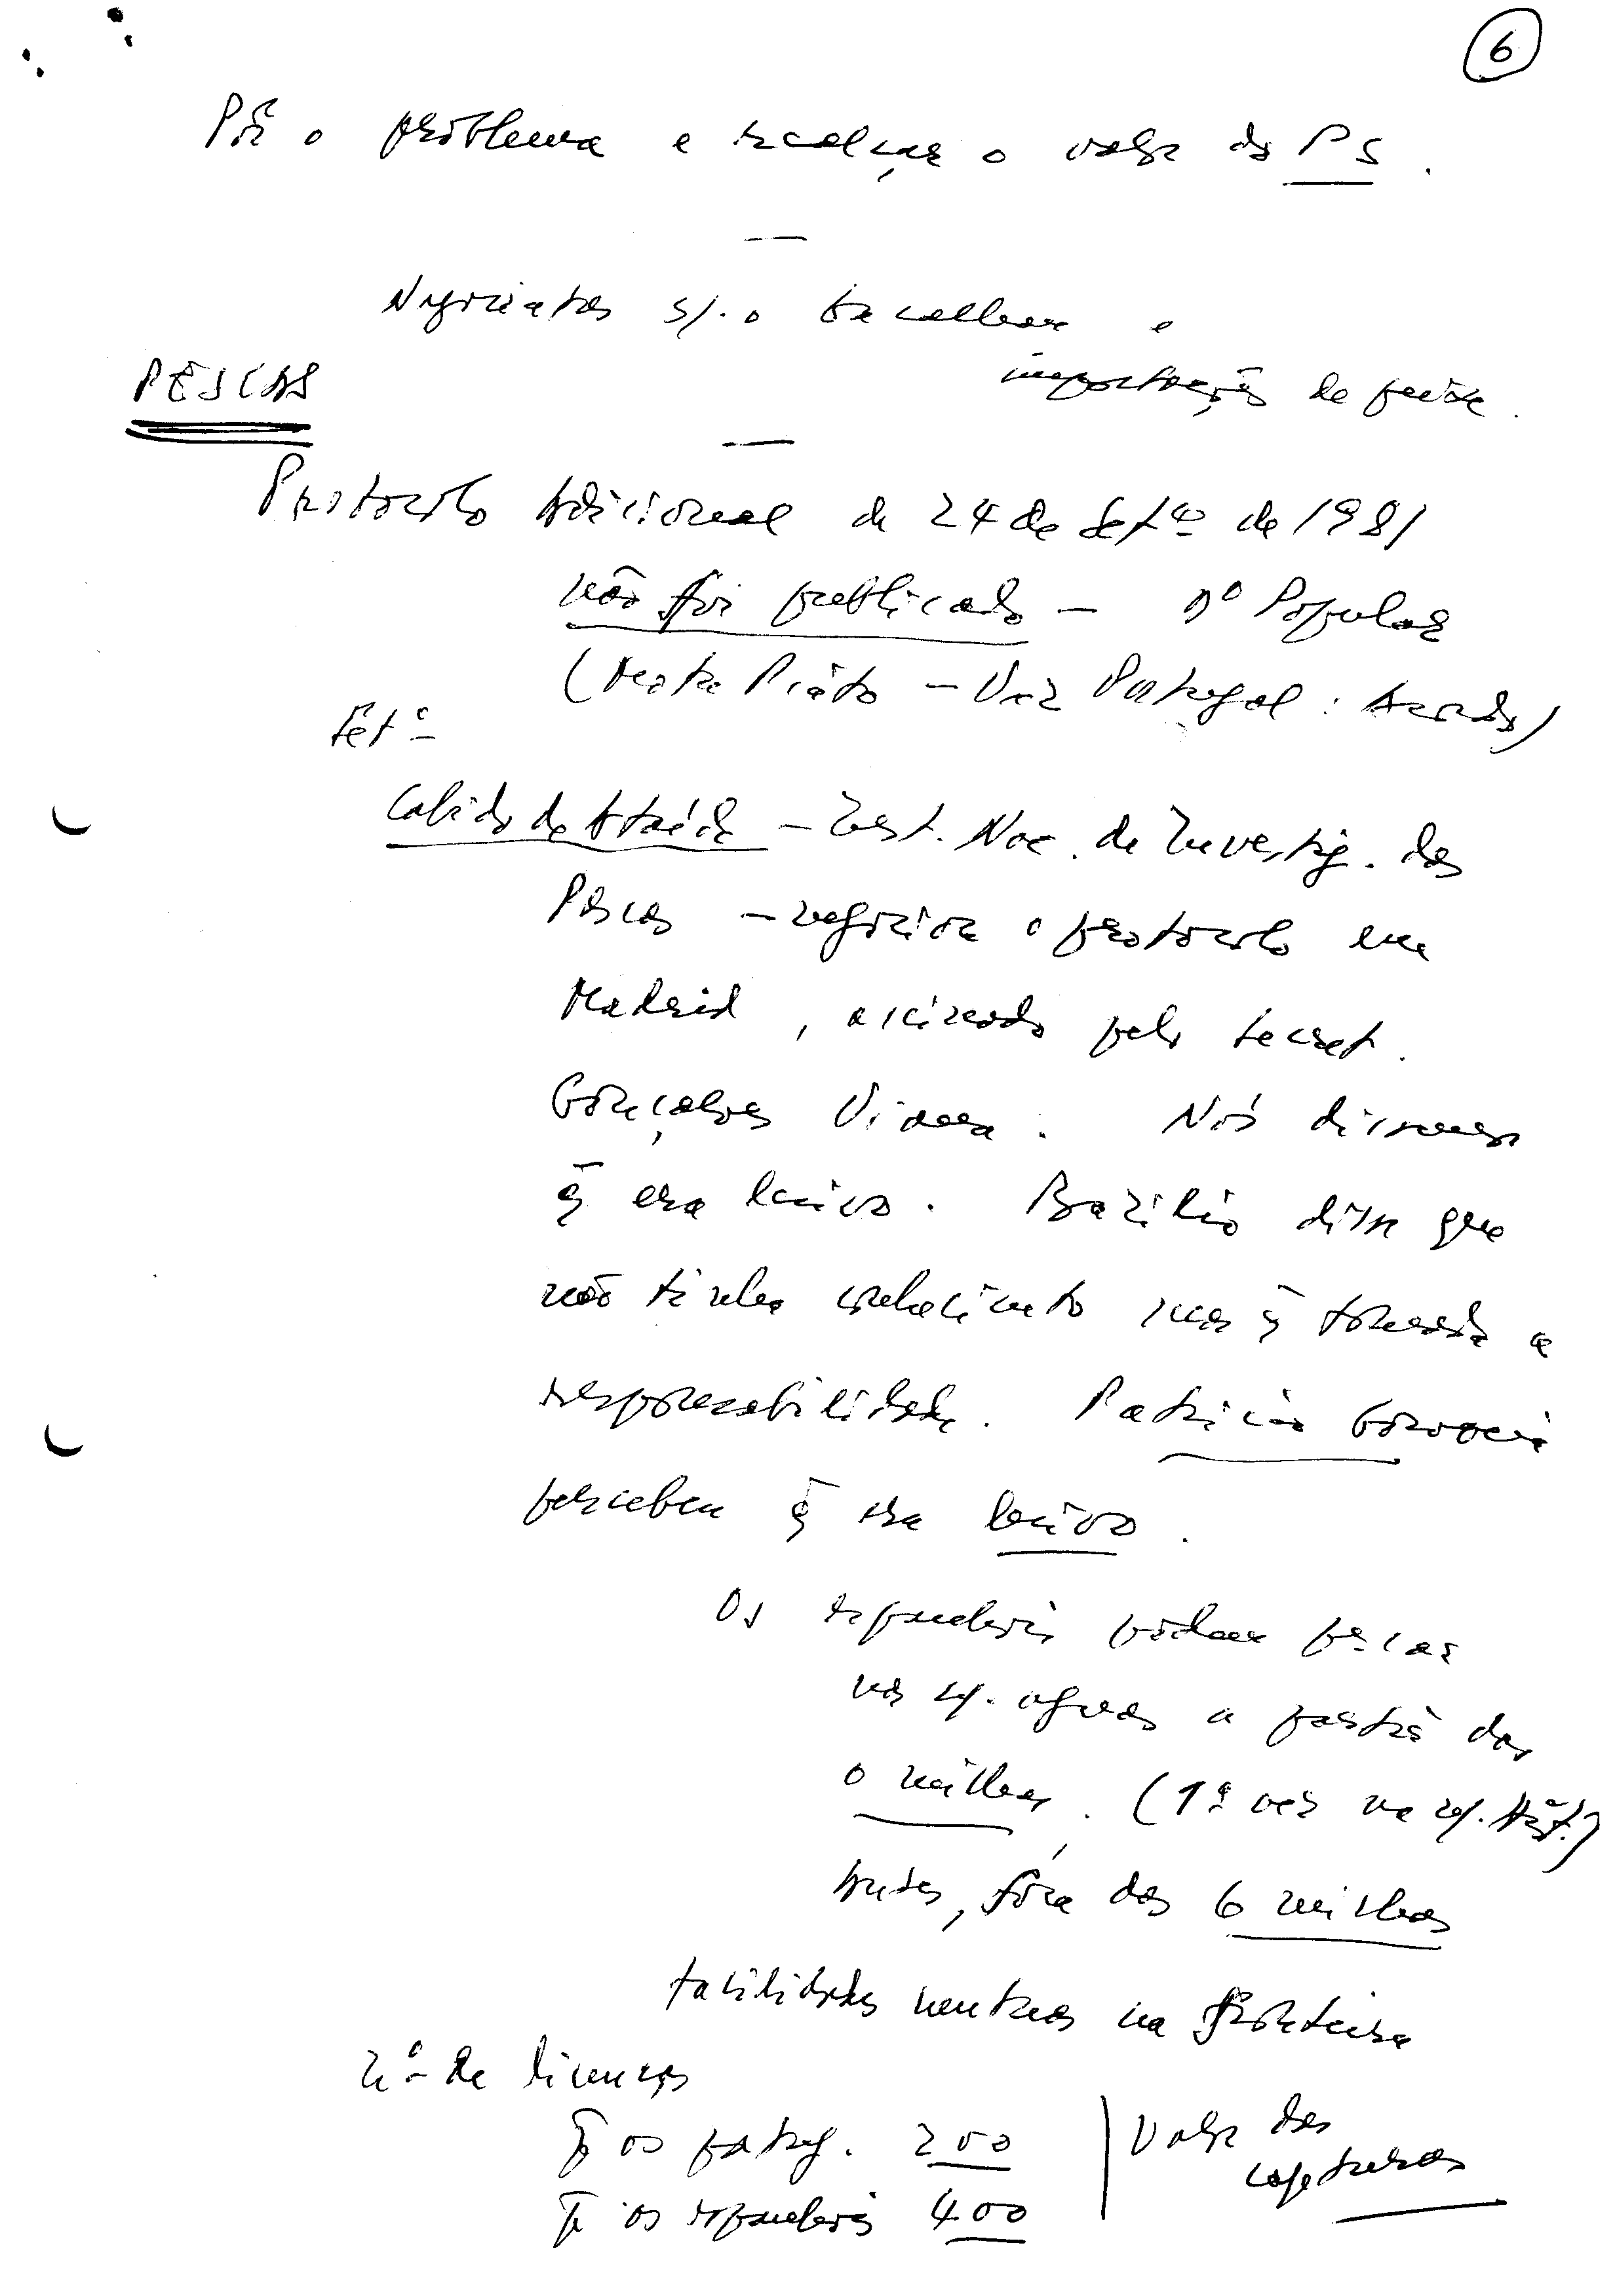 6
Pôr o problema e realçar o valor do PS.
Negociatas s/. o bacalhau e
importação de peixe.
PESCAS
Protocolo Adicional de 24 de Setº de 1981
não foi publicado — Dº Popular
(Mota Pinto — Voz Portugal: Acordo)
Cabido de Ataíde — Inst. Nac. de Investig. das
Pescas — negociou o protocolo em
Madrid, assinado pelo Secret.
Gonçalves Viana. Nós dissemos
q̃ era lesivo. Bazílio disse que
não tinha conhecimento mas q̃ tomava a
responsabilidade. Patrício Gouveia
percebeu q̃ era lesivo.
Os espanhóis podem pescar
nas águas a partir das
0 milhas. (1ª vez na Hist.)
Antes, fóra das 6 milhas
Facilidades mutuas na fronteira
nº de licenças
os portug. 200
os espanhóis 400
Valor das
capturas